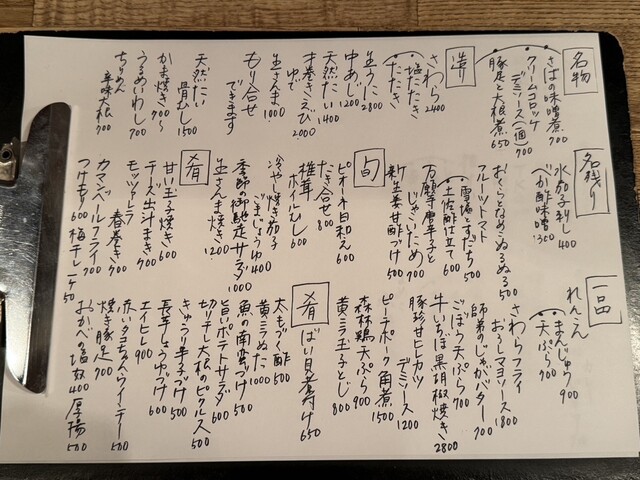 名物
さばの味噌煮 700
クリームコロッケ
デミソース(1個) 700
豚足と大根煮 650
造り
さわら 2400
塩たたき
たたき
生うに 2800
中あじ 1200
天然たい 1400
才巻きえび 2000
ゆで
生さんま 1000
もり合せ
できます
天然たい
骨むし 1500
かま焼き 900〜
うるめいわし 700
ちりめん
辛味大根 700
名残り
水茄子刺し 400
べか酢味噌 300
おくらとなめこぬるぬる 500
フルーツトマト
雪塩とすだち 500
土佐酢仕立て 600
万願寺唐辛子と
じゃこいため 700
新生姜甘酢づけ 500
旬
ピオーネ白和え 600
たき合せ 800
椎茸
ホイルむし 600
冷やし焼き茄子
ごまじょうゆ 400
季節の御馳走サラダ 1000
生さんま焼き 1200
肴
甘い玉子焼き 600
チーズ出汁まき 700
モッツァレラ
春巻き 700
カマンベールフライ 700
つけもり 600
梅チーレンケ 450
一品
れんこん
まんじゅう 900
天ぷら 700
さわらフライ
おろしマヨソース 1800
師弟のじゃがバター 700
ごぼう天ぷら 700
牛いちぼ黒胡椒焼き 2800
豚珍甘ヒレカツ
デミソース 1200
ピーチポーク角煮 1500
森林鶏天ぷら 900
黄ニラ玉子とじ 800
肴
ばい貝煮付け 650
太もずく酢 500
黄ニラぬた 1000
魚の南蛮づけ 500
旨いポテトサラダ 600
切りチレ大根のピクルス 500
きゅうり辛子づけ 500
長芋しょうゆづけ 600
エイヒレ 900
赤いタコちゃんウインナー 500
焼き豚足 700
おかべの塩奴 400
厚揚 500